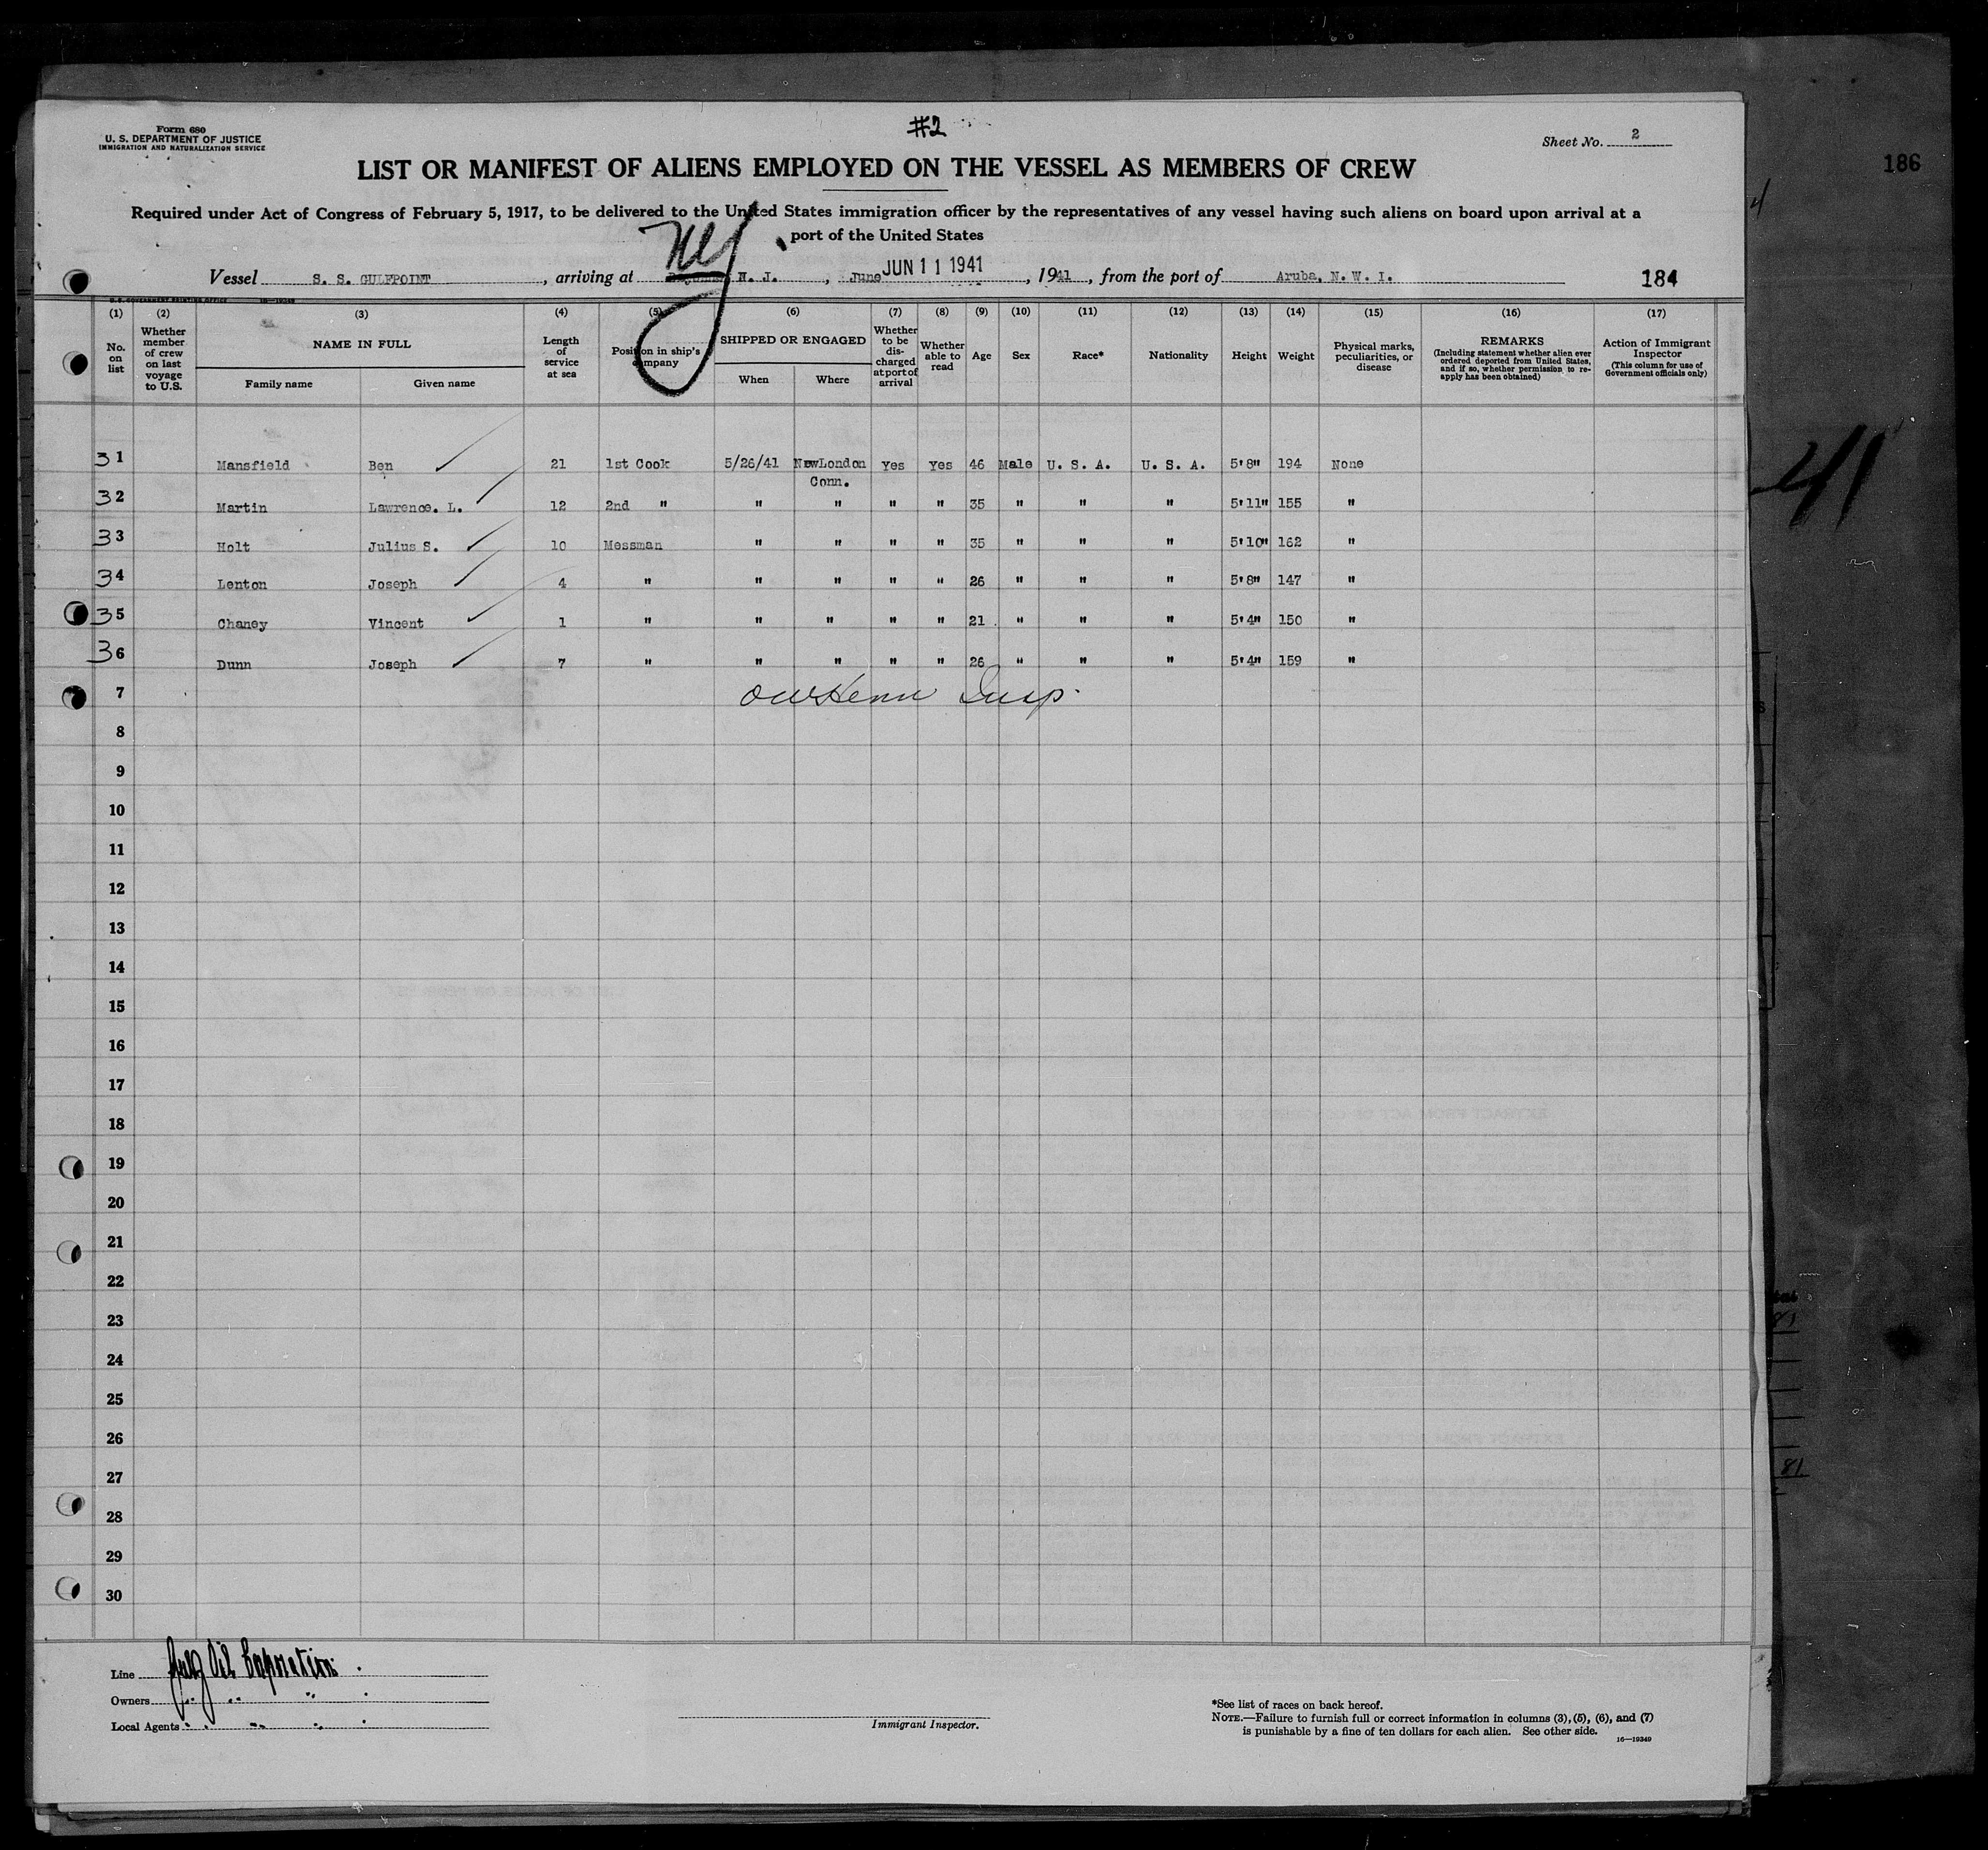 Form 680
U. S. DEPARTMENT OF JUSTICE
IMMIGRATION AND NATURALIZATION SERVICE
#2
Sheet No. 2
186
LIST OR MANIFEST OF ALIENS EMPLOYED ON THE VESSEL AS MEMBERS OF CREW
Required under Act of Congress of February 5, 1917, to be delivered to the United States immigration officer by the representatives of any vessel having such aliens on board upon arrival at a
port of the United States
NY
Vessel S. S. GULFPOINT, arriving at N. J., June JUN 11 1941, 1941, from the port of Aruba, N. W. I. 184
U.S. GOVERNMENT PRINTING OFFICE 16—19349
(1) (2) (3) (4) (5) (6) (7) (8) (9) (10) (11) (12) (13) (14) (15) (16) (17)
No. on list
Whether member of crew on last voyage to U.S.
NAME IN FULL
Family name Given name
Length of service at sea
Position in ship's company
SHIPPED OR ENGAGED
When Where
Whether to be discharged at port of arrival
Whether able to read
Age
Sex
Race*
Nationality
Height
Weight
Physical marks, peculiarities, or disease
REMARKS
(Including statement whether alien ever ordered deported from United States, and if so, whether permission to reapply has been obtained)
Action of Immigrant Inspector
(This column for use of Government officials only)
31 Mansfield Ben 21 1st Cook 5/26/41 NewLondon Conn. Yes Yes 46 Male U. S. A. U. S. A. 5'8" 194 None
32 Martin Lawrence. L. 12 2nd " " " " " 35 " " " 5'11" 155 "
33 Holt Julius S. 10 Messman " " " " 35 " " " 5'10" 162 "
34 Lenton Joseph 4 " " " " " 26 " " " 5'8" 147 "
35 Chaney Vincent 1 " " " " " 21 " " " 5'4" 150 "
36 Dunn Joseph 7 " " " " " 26 " " " 5'4" 159 "
7 Insp.
8
9
10
11
12
13
14
15
16
17
18
19
20
21
22
23
24
25
26
27
28
29
30
41
81
Line Gulf Oil Corporation
Owners " " "
Local Agents " " "
Immigrant Inspector.
*See list of races on back hereof.
NOTE.—Failure to furnish full or correct information in columns (3), (5), (6), and (7)
is punishable by a fine of ten dollars for each alien. See other side.
16—19349